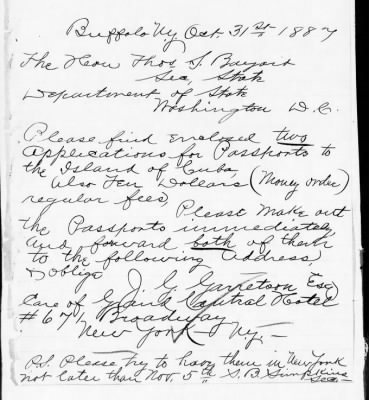 Buffalo Ny Oct. 31st 1887
The Hon Thos F. Bayard
Sec, State
Department of State
Washington D.C.
Please find enclosed two
applications for Passports to
the Island of Cuba
Also Ten Dollars (Money order)
regular fees)
Please make out
the Passports immediately
and forward both of them
to the following address
& oblige
J. G. Garretson Esq
Care of Grand Central Hotel
# 671, Broadway
New York - Ny -
P.S. Please try to have them in New York
not later than Nov. 5th S. B. Simpkins
Sec